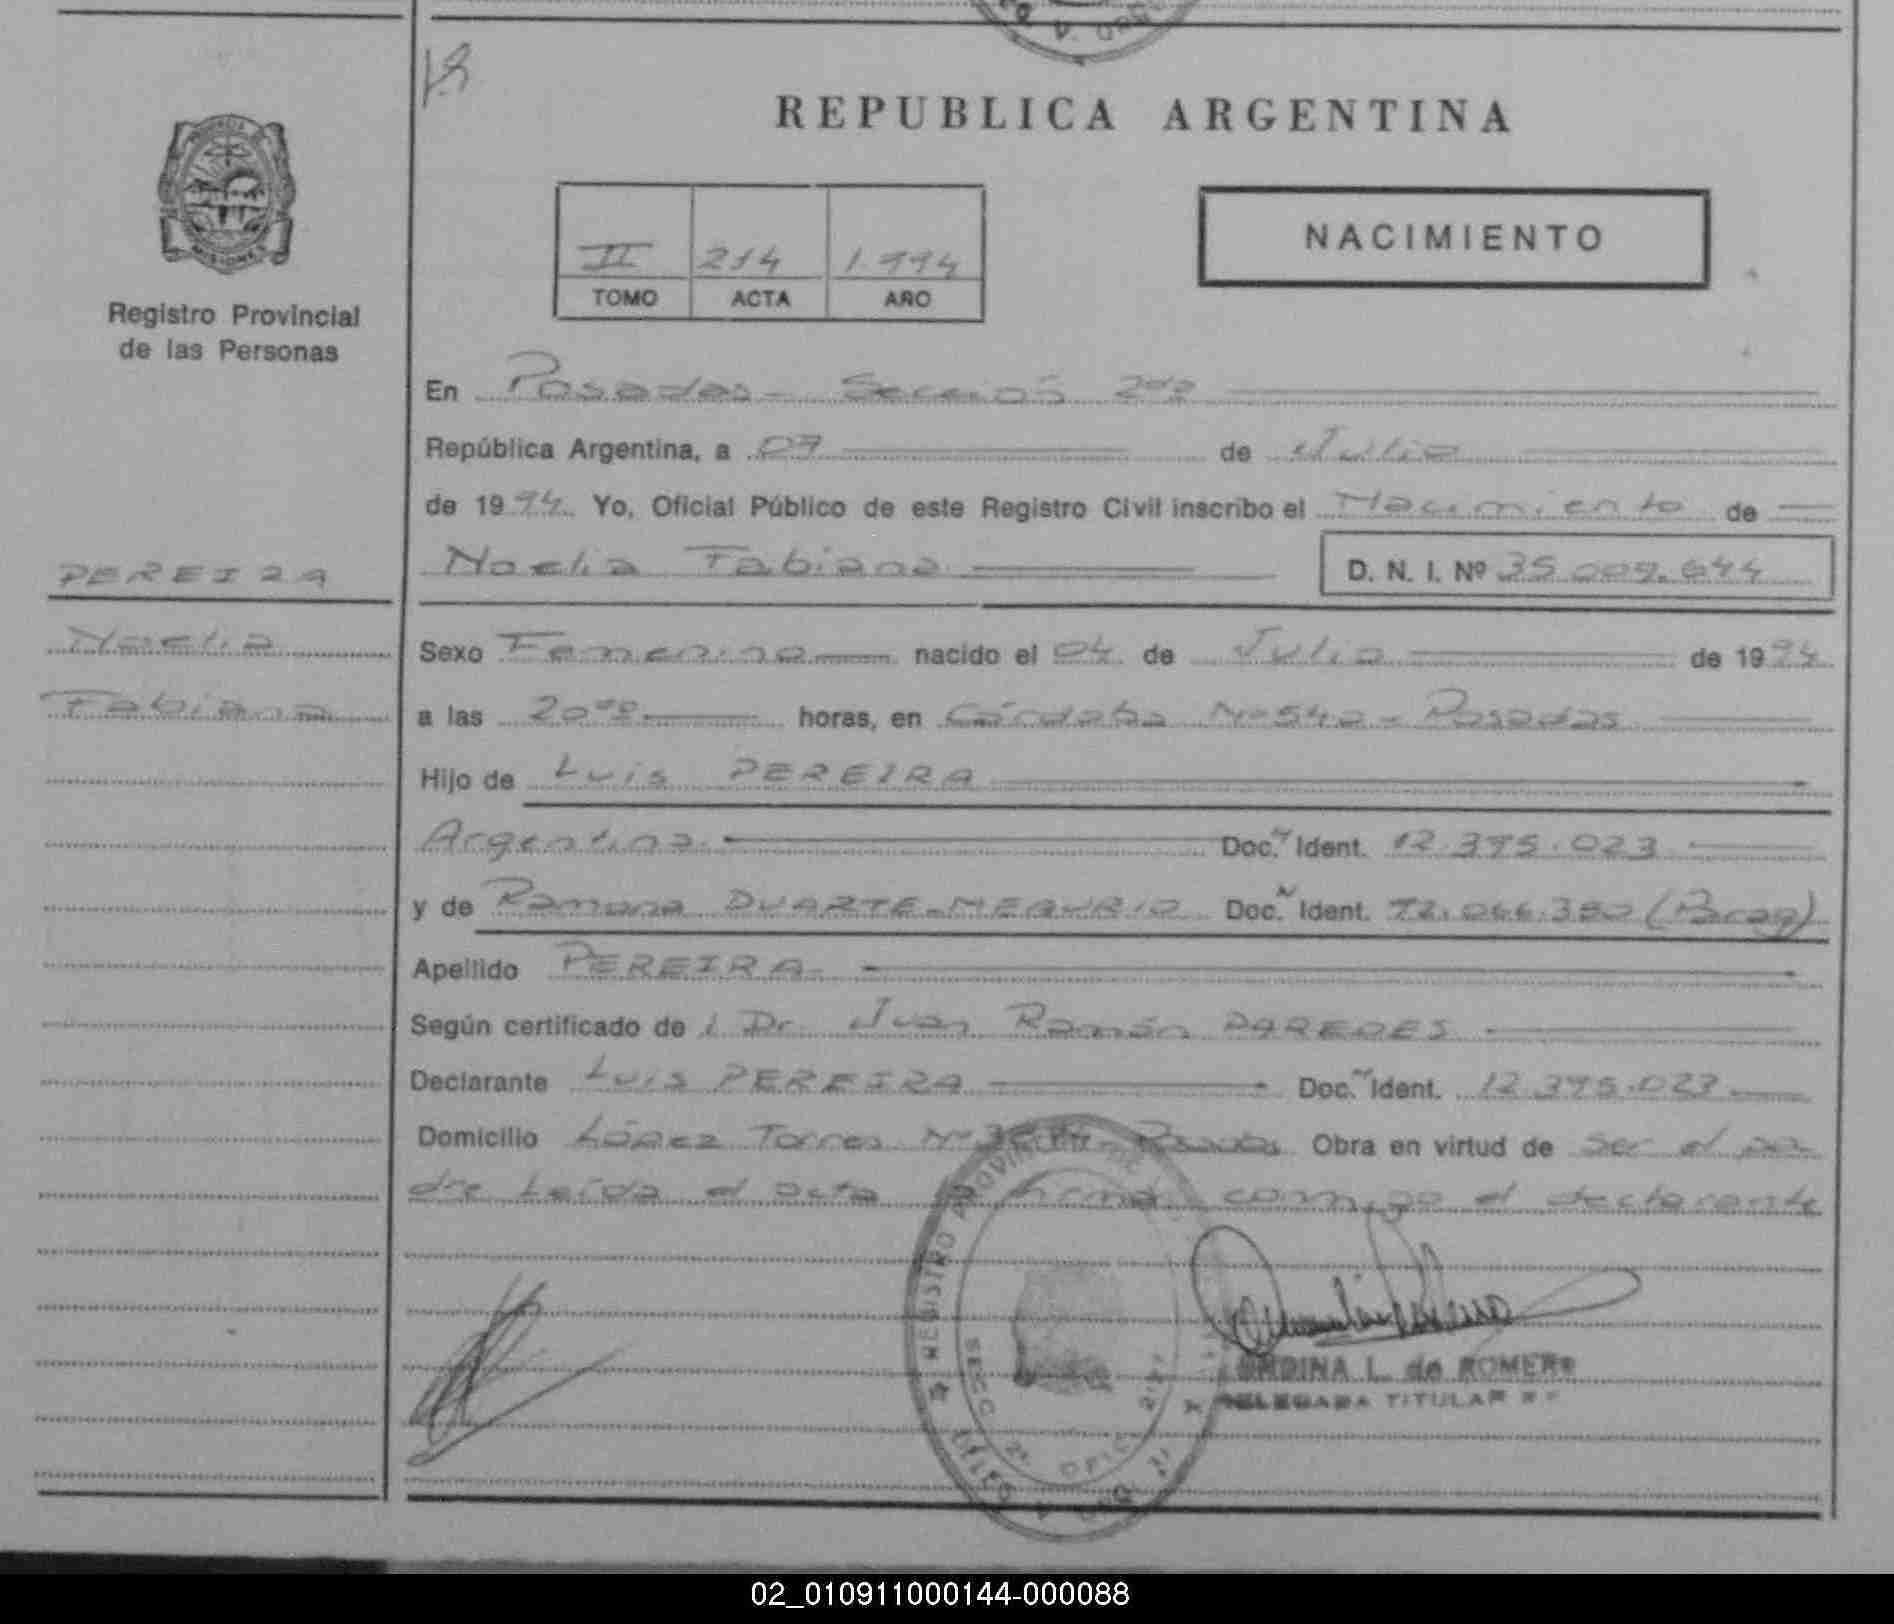 REPUBLICA ARGENTINA
PROVINCIA DE
MISIONES
Registro Provincial
de las Personas
NACIMIENTO
II 214 1.994
TOMO ACTA AÑO
En Posadas - Sección 2da
República Argentina, a 07 de Julio
de 1994. Yo, Oficial Público de este Registro Civil inscribo el Nacimiento de
Noelia Fabiana D. N. I. Nº 35.009.644
PEREIRA
Noelia
Fabiana
Sexo Femenino nacido el 04 de Julio de 1994
a las 20 horas, en Córdoba Nº 540 - Posadas
Hijo de Luis PEREIRA
Argentina. Doc. Ident. 12.395.023
y de Ramona DUARTE Doc. Ident. 92.066.380 (Parag)
Apellido PEREIRA.
Según certificado de Dr. Juan Ramón PAREDES
Declarante Luis PEREIRA Doc. Ident. 12.395.023
Domicilio López Torres Nº Posadas Obra en virtud de ser el pa-
dre Leída el acta firma conmigo el declarante
REGISTRO PROVINCIAL DE
SECC. 2ª
L. de ROMERO
DELEGADA TITULAR
02_010911000144-000088